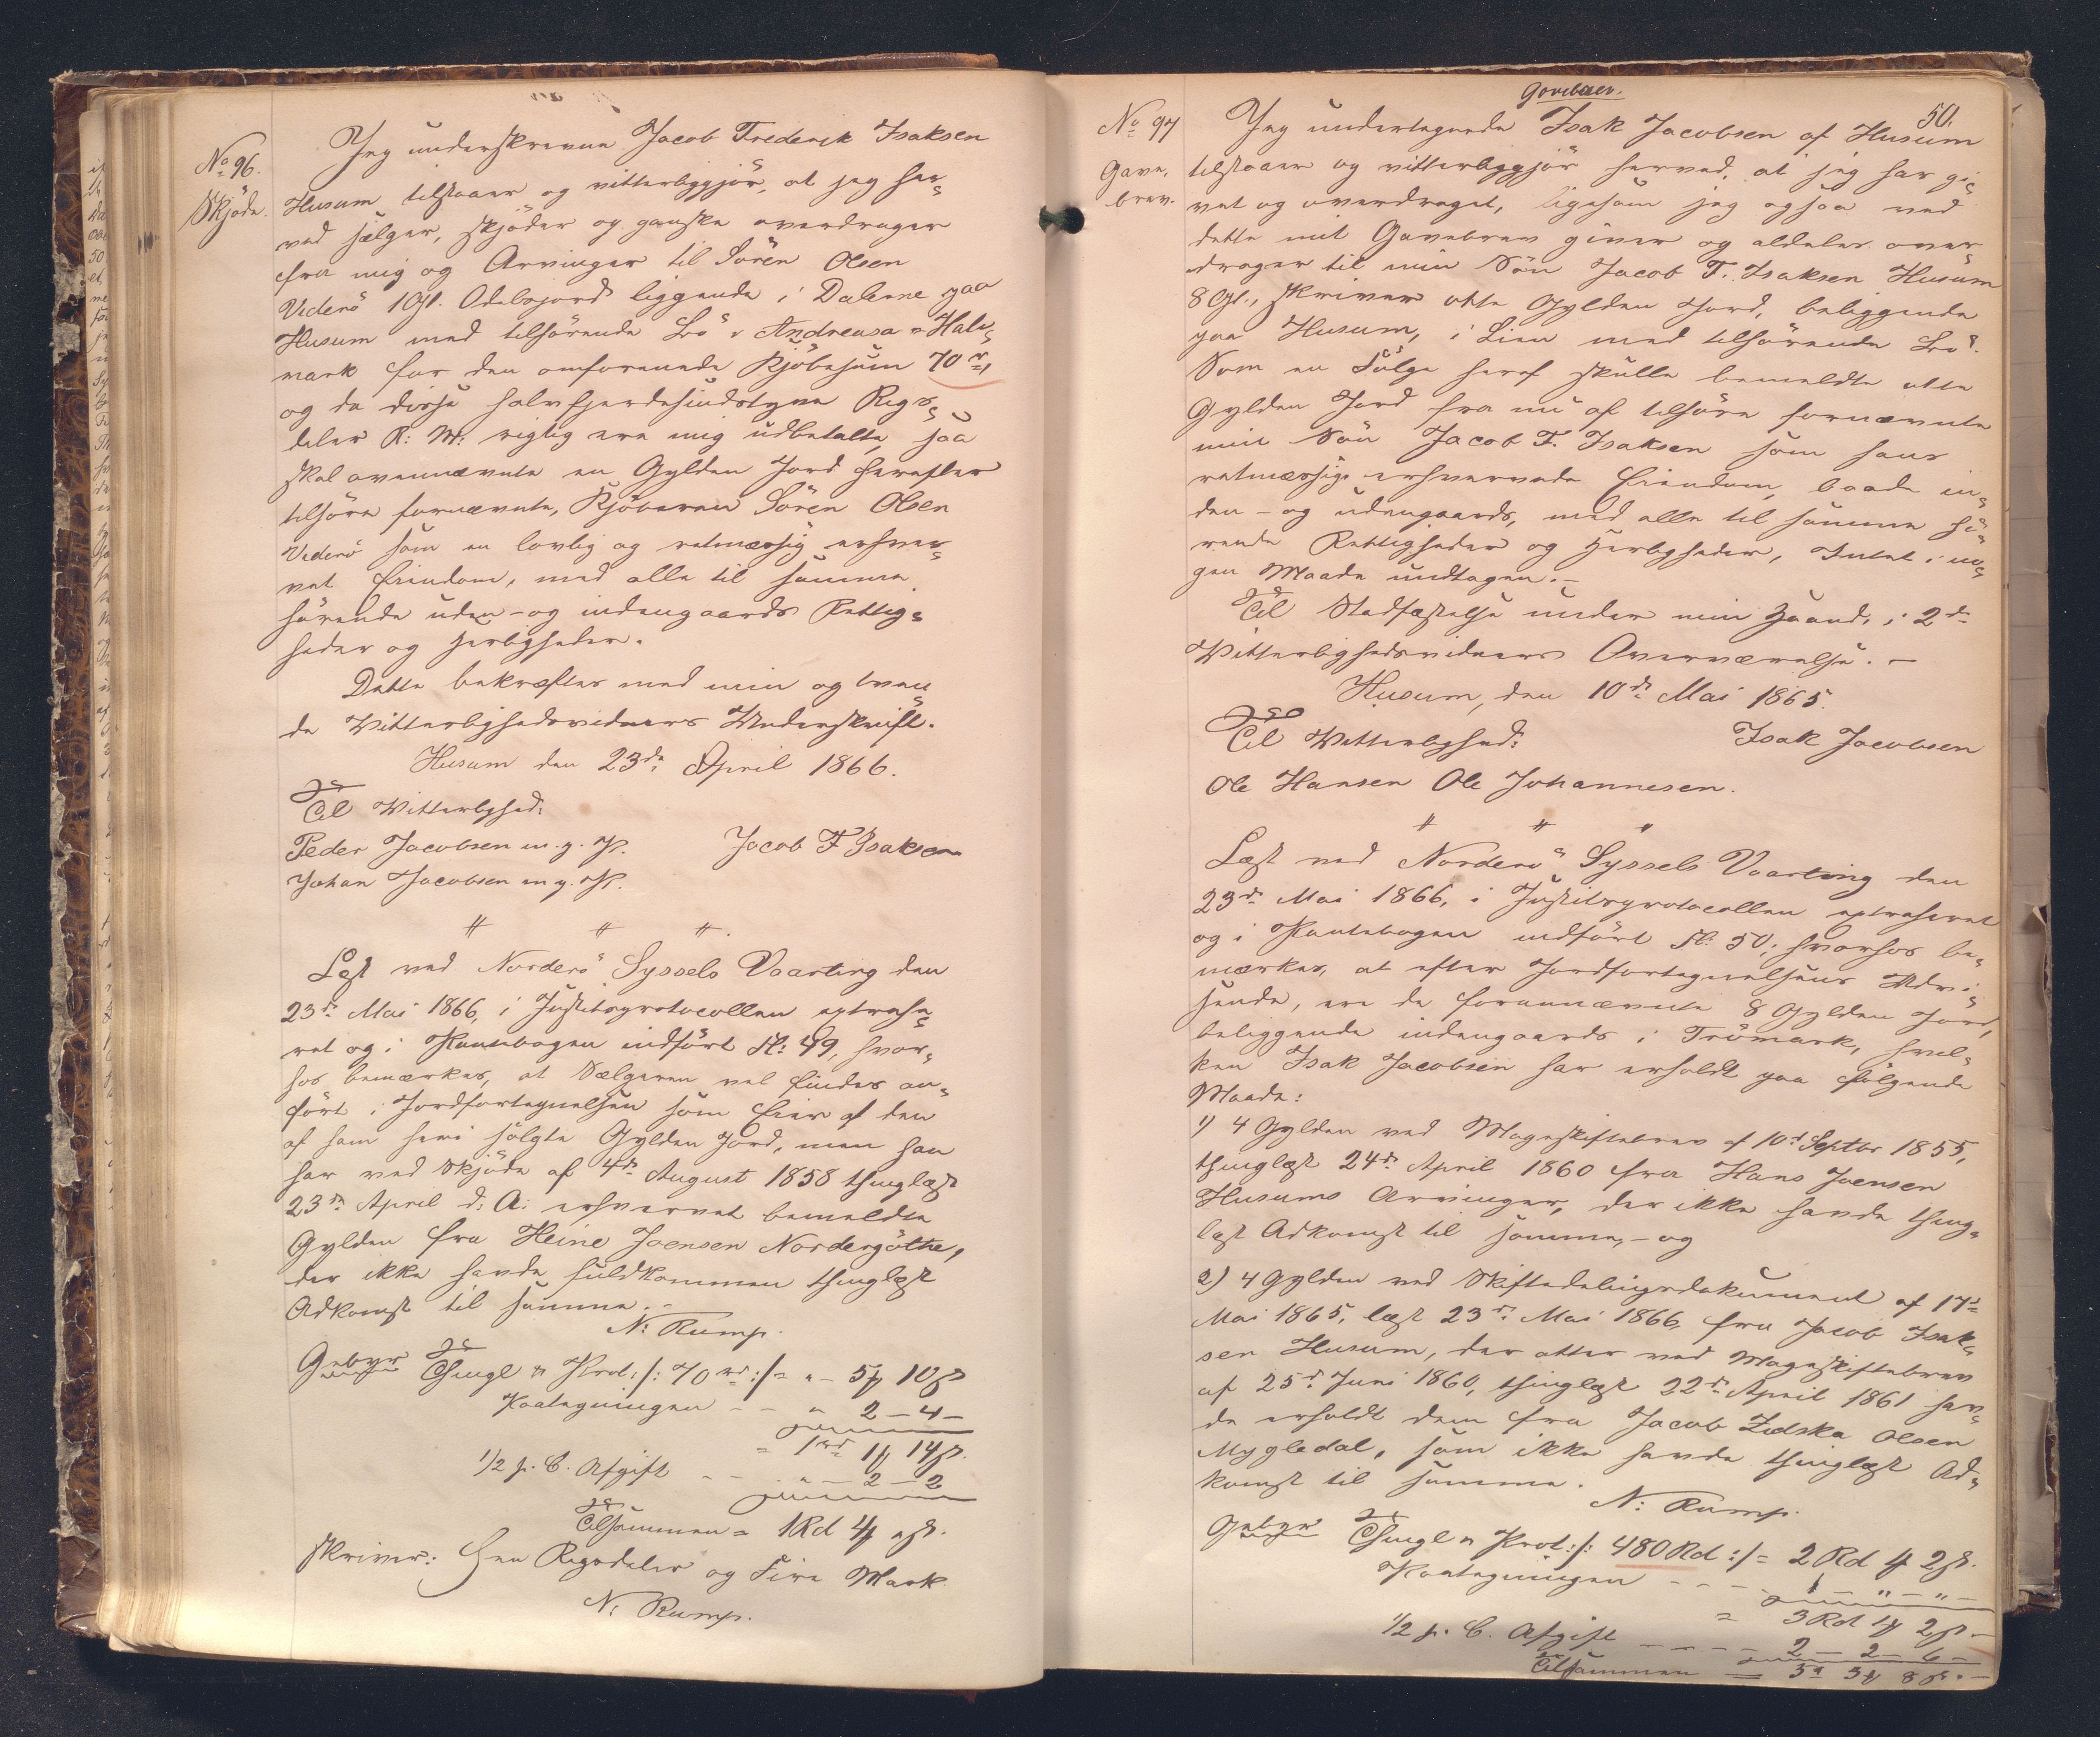 No 96.
Skjøde.
Jeg underskrevne Jacob Frederik Isaksen
Husum tilstaaer og vitterliggjør, at jeg her=
ved sælger, skjøder og ganske overdrager
fra mig og Arvinger til Sören Olsen
Viderö 1 Gl. Odelsjord liggende i Dalene paa
Husum med tilhørende Lod i Andreasa Hals=
mark for den omforenede Kjöbesum 70 rd,
og da disse halvfjerdesindstyve Rigs=
daler R: M: rigtig ere mig udbetalte, saa
skal ovennævnte en Gylden Jord herefter
tilhøre fornævnte, Kjöberen Sören Olsen
Viderö som en lovlig og retmæssig erhver=
vet Eiendom, med alle til samme
hörende uden- og indengaards Rettig=
heder og Herligheder.
Dette bekræfter med min og tven=
de Vitterlighedsvidners Underskrift.
Husum den 23de April 1866.
Til Vitterlighed:
Peder Jacobsen m. g. P. Jacob F Isaksen
Johan Jacobsen m. g. P.
" " ".
Læst ved Norderö Syssels Vaarting den
23de Mai 1866, i Justitsprotocollen extrahe=
ret og i Pantebogen indfört Fl: 49, hvor=
hos bemærkes, at Sælgeren vel findes an=
fört i Jordfortegnelsen som Eier af den
af ham heri solgte Gylden Jord, men han
har ved Skjöde af 4de August 1858 thinglæst
23de April d: A: erhvervet bemeldte
Gylden fra Heine Joensen Nordergöthe,
der ikke havde fuldkommen thinglæst
Adkomst til samme.-
N: Rump.
Gebyr Thingl & Prot: /: 70 rd :/ = " - 5 ꝟ 10 ß
Paategningen - - " 2 - 4 -
= 1 rd 1 ꝟ 14 ß.
1/2 p. C. Afgift - - " - 2 - 2
Tilsammen = 1 Rd 4 ꝟ " ß.
skriver: Een Rigsdaler og Fire Mark.
N: Rump.
50.
No 97
Gave,
brev.
Jeg undertegnede Isak Jacobsen af Husum
tilstaaer og vitterliggjör herved, at jeg har gi=
vet og overdraget, ligesom jeg ogsaa ved
dette mit Gavebrev giver og aldeles over
drager til min Sön Jacob F. Isaksen Husum
8 Gl., skriver otte Gylden Jord, beliggende
paa Husum, i Lien med tilhörende Lod.
Som en Fölge heraf skulle bemeldte otte
Gylden Jord fra nu af tilhöre fornævnte
min Sön Jacob F. Isaksen som hans
retmæssige erhvervede Eiendom, baade in=
den- og udengaards, med alle til samme hö=
rende Rettigheder og Herligheder, Intet i no=
gen Maade undtagen.-
Til Stadfæstelse under min Haand, i 2de
Vitterlighedsvidners Overværelse.-
Husum, den 10de Mai 1865.
Til Vitterlighed: Isak Jacobsen
Ole Hansen Ole Johannesen.
" " "
Læst ved Norderö Syssels Vaarting den
23de Mai 1866, i Justitsprotocollen extraheret
og i Pantebogen indfört Fl: 50, hvorhos be=
mærkes, at efter Jordfortegnelsens Udvi=
sende, ere de forannævnte 8 Gylden Jord,
beliggende indengaards i Trömark, hvil=
ken Isak Jacobsen har erholdt paa fölgende
Maade:
1) 4 Gylden ved Mageskiftebrev af 10de Septbr 1855,
thinglæst 24de April 1860 fra Hans Joensen
Husums Arvinger, der ikke havde thing=
læst Adkomst til samme,- og
2) 4 Gylden ved Skiftedelingsdokument af 17de
Mai 1865, læst 23de Mai 1866, fra Jacob Isak=
sen Husum, der atter ved Mageskiftebrev
af 25de Juni 1860, thinglæst 22de April 1861 hav=
de erholdt dem fra Jacob Zidska Olsen
Mygledal, som ikke havde thinglæst Ad=
komst til samme.
N: Rump.
Gebyr Thingl & Prot: /: 480 Rd :/ = 2 Rd ꝟ 2 ß.
Paategningen - - - 1 - " - " -
= 3 Rd 1 ꝟ 2 ß -
1/2 p. C. Afgift - - - - 2 - 2 - 6 -
Tilsammen = 5 rd 3 ꝟ 8 ß. -